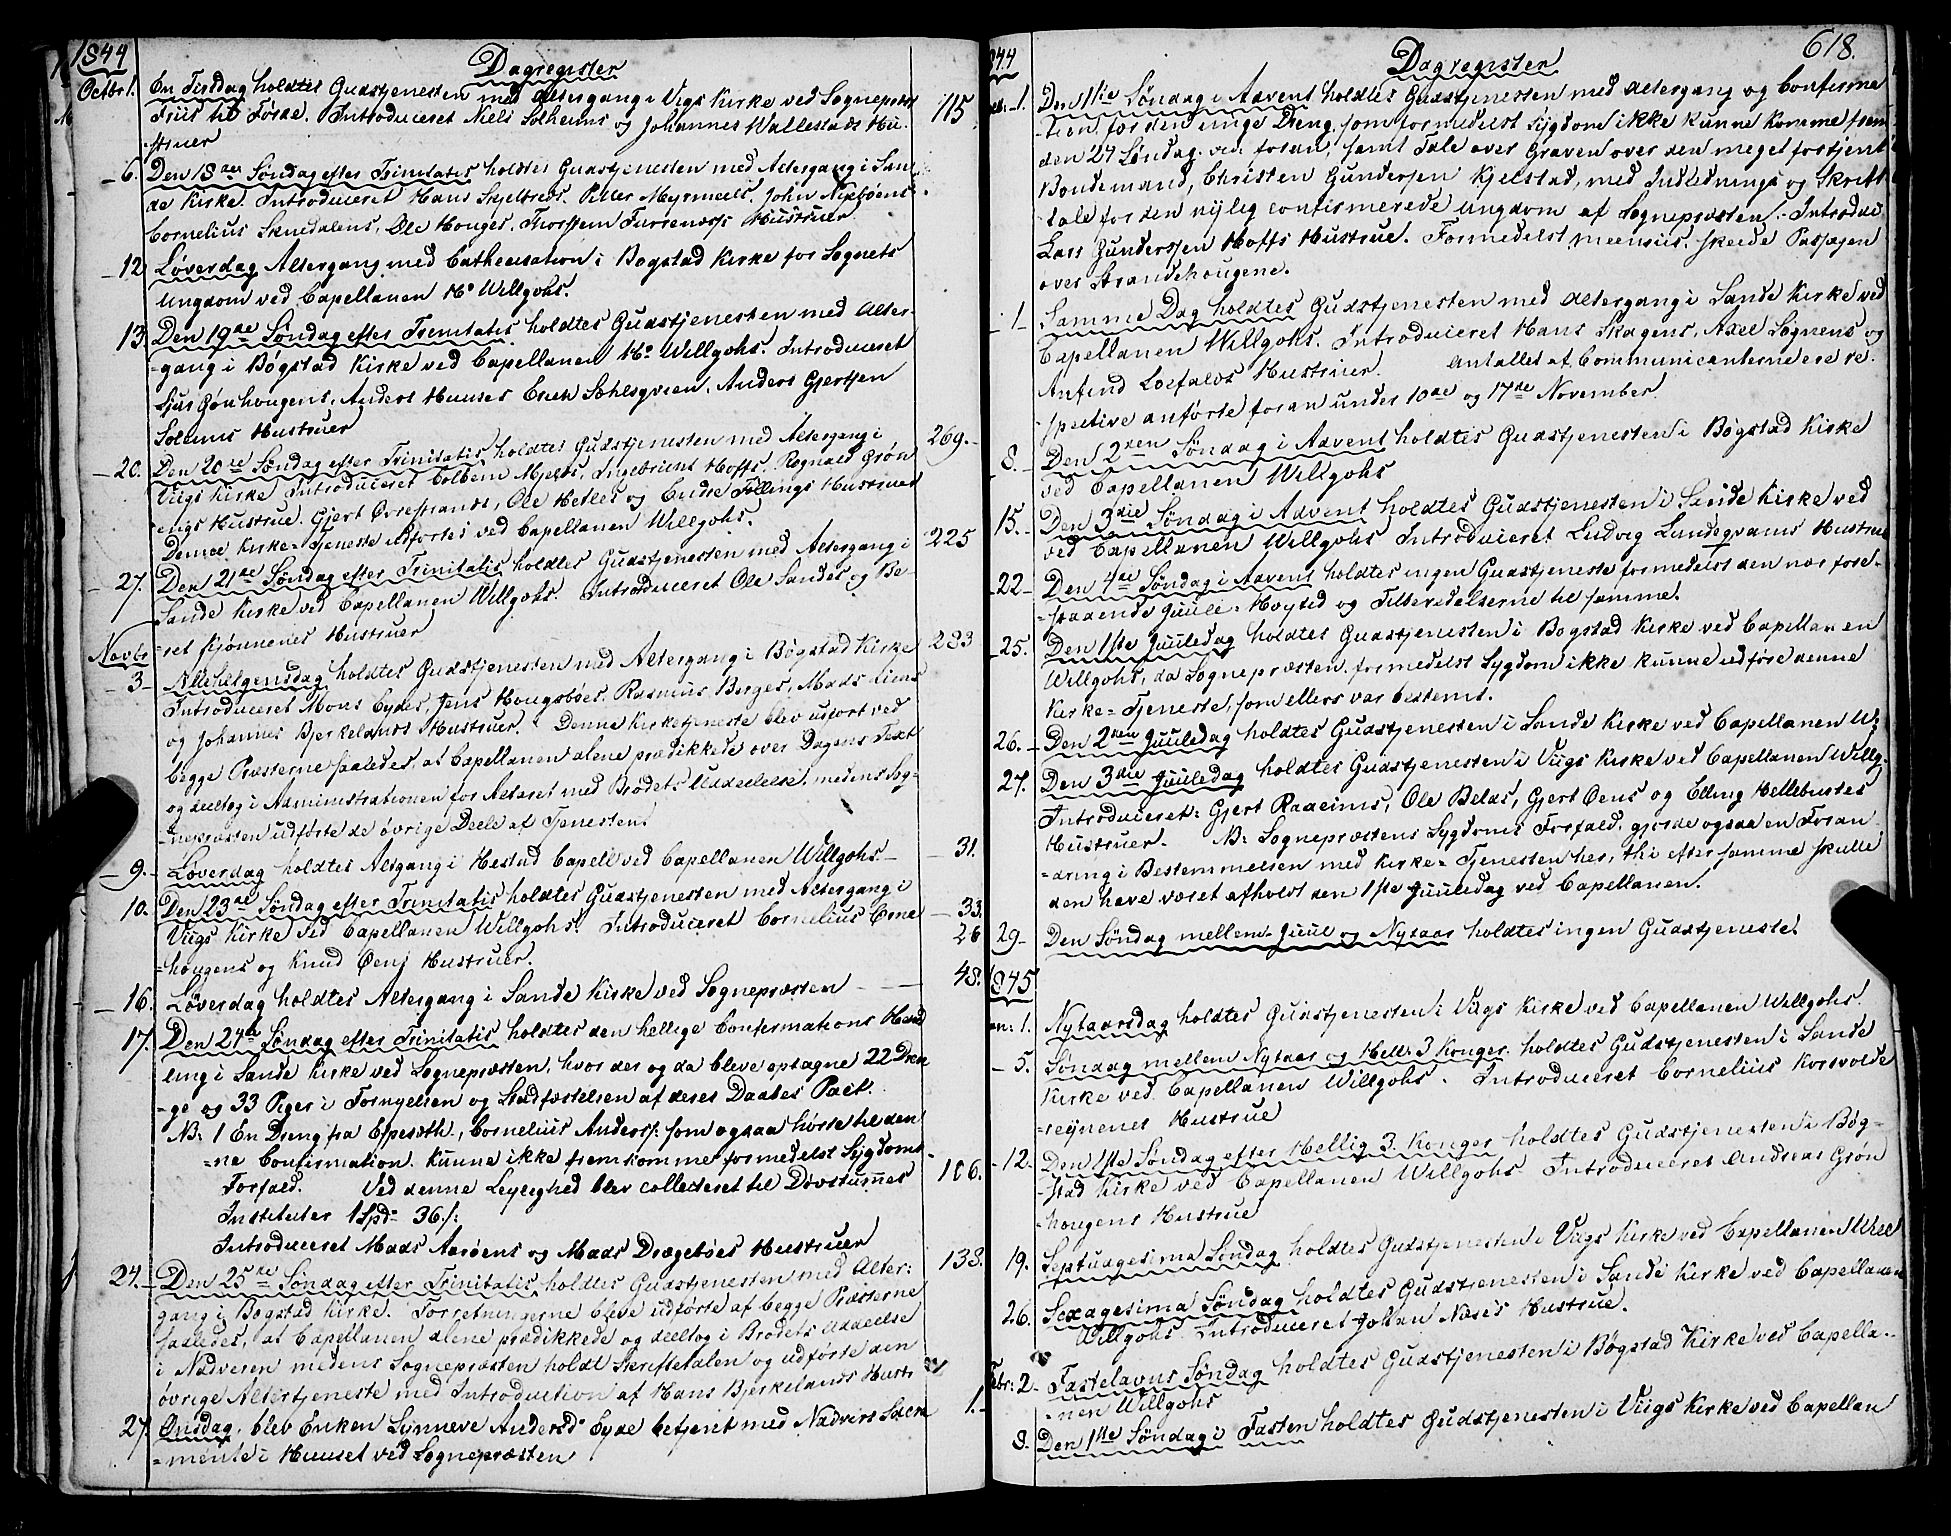 1844 Dagregister
Octbr 1. En Tirsdag holdtes Gudstjenesten med Altergang i Viigs Kirke ved Sognepræst 115
Friis til Førde. Introduceret Niels Solheims og Johannes Wallestads Hu-
struer
6. Den 18de Søndag efter Trinitatis holdtes Gudstjenesten med Altergang i San-
de Kirke. Introduceret Hans Skjeltreds, Peter Myrmeels, John
Cornelius Skredalens, Ole Houges, Thorstein Hustruer
12 Løverdag Altergang med Cathecisation i Bøgstad Kirke for Sognets
Ungdom ved Capellanen Hr Willgohs.
13. Den 19de Søndag efter Trinitatis holdtes Gudstjenesten med Alter-
=gang i Bøgstad Kirke ved Capellanen Hr Willgohs. Introduceret
Anders Huuses Erich Anders Gjertsen
Solems Hustruer
20. Den 20de Søndag efter Trinitatis holdtes Gudstjenesten med Altergang i 269.
Viigs Kirke Introduceret Colbein Mjelds, Ingebricht Hoffs, Rognald Grøn
engs Hustrue. Gjert Øvrestrands, Ole Hetles og Endre Føllings Hustruer
Denne Kirke=Tjeneste udførtes ved Capellanen Willgohs.
27. Den 21de Søndag efter Trinitatis holdtes Gudstjenesten med Altergang i 225
Sande Kirke ved Capellanen Willgohs. Introduceret Ole Sandes og Be-
=ret Hustruer
Novbr
3 Allehelgensdag holdtes Gudstjenesten med Altergang i Bøgstad Kirke 283
Introduceret Mons Eydes, Jens Hougsbøes, Rasmus Berges, Mads Liens
og Johannes Bjerkelands Hustruer. Denne Kirketjeneste blev udført ved
begge Præsterne saaledes, at Capellanen alene prædikkede over Dagens Text
og deeltog i Administrationen for Alteret med Brødets Uddeelelse, medens Sog-
=nepræsten udførte de øvrige Deele af Tjenesten
9. Løverdag holdtes Altgang i Hestad Capell ved Capellanen Willgohs 31.
10. Den 23de Søndag efter Trinitatis holdtes Gudstjenesten med Altergang i
Viigs Kirke ved Capellanen Willgohs. Introduceret Cornelius Erne 33.
=hougens og Knud Øens Hustruer. 26
16. Løverdag holdtes Altergang i Sande Kirke ved Sognepræsten 48.
17. Den 24de Søndag efter Trinitatis holdtes den hellige Confirmations Hand
ling i Sande Kirke ved Sognepræsten, hvor der og da bleve optagne 22 Dren
=ge og 33 Piger i Fornyelsen og Stadfæstelsen af deres Daabes Pact.
NB: 1 En Dreng fra Espesæth, Cornelius Anders: som ogsaa hørte til den
=ne Confirmation kunne ikke fremkomme formedelst Sygdoms
Forfald. Ved denne Leylighed blev collecteret til Døvstummes 106.
Instituter 1 Spd 36 s:
Introduceret Mads Aarøens og Mads Drægebøes Hustruer
24. Den 25de Søndag efter Trinitatis holdtes Gudstjenesten med Alter: 138.
gang i Bøgstad Kirke. Forretningerne bleve udførte af begge Præsterne
saaledes, at Capellanen alene prædikkede og deeltog i Brødets Uddeelse
i Nadveren medens Sognepræsten holdt Skriftetalen og udførte den
øvrige Altertjeneste med Introduction af Hans Bjerkelands Hustr
27. Onsdag, blev Enken Synneve Andersd: Eyde betjent med Nadvers Sacra 1.
=mente i Huuset ved Sognepræsten
844 Dagregister 618.
1. Den 1ste Søndag i Advent holdtes Gudstjenesten med Altergang og Confirma
=tion, for den unge Dreng, som formedelst Sygdom ikke kunne komme frem
den 24 Søndag. vid: foran, samt Tale over Graven over den meget fortjent
Bondemand, Christen Gundersen Kjelstad, med Indlednings og Skrift
tale for den nylig confirmerede Ungdom af Sognepræsten. Introduc:
Lars Gundersen Hoffs Hustrue. Formedelst skeede Passasjen
over Strandehougene.
1 Samme Dag holdtes Gudstjenesten med Altergang i Sande Kirke ved
Capellanen Willgohs. Introduceret Hans Skagens, Axel Sognens og
Anfind Loefalds Hustruer. Antallet af Communicanterne ere re-
spective anførte foran under 10de og 17de November.
8. Den 2den Søndag i Advent holdtes Gudstjenesten i Bøgstad Kirke
ved Capellanen Willgohs
15. Den 3die Søndag i Advent holdtes Gudstjenesten i Sande Kirke ved
ved Capellanen Willgohs Introduceret Ludvig Lundeqvams Hustrue
22 Den 4de Søndag i Advent holdtes ingen Gudstjeneste formedelst den nær fore-
=staaende Juule=Høytid og Tilberedelserne til samme.
25. Den 1ste Juuledag holdtes Gudstjenesten i Bøgstad Kirke ved Capellanen
Willgohs, da Sognepræsten formedelst Sygdom ikke kunne udføre denne
Kirke=Tjeneste, som ellers var bestemt.
26. Den 2den Juuledag holdtes Gudstjenesten i Sande Kirke ved Capellanen W:
27. Den 3die Juuledag holdtes Gudstjenesten i Viigs Kirke ved Capellanen Willg.
Introduceret: Gjert Raaeims, Ole Belds, Gjert Øens og Elling Hellebustes
Hustruer. NB: Sognepræstens Sygdoms Forfald, gjorde ogsaa en Foran-
=dring i Bestemmelsen med Kirke=Tjenesten her, thi efter samme skulle
den have været afholdt den 1ste Juuledag ved Capellanen.
29 Den Søndag mellem Juul og Nytaar holdtes ingen Gudstjeneste
1845
an: 1. Nytaarsdag holdtes Gudstjenesten i Viigs Kirke ved Capellanen Willgohs.
5. Søndag mellem Nytaar og Hell: 3 Konger holdtes Gudstjenesten i Sande
Kirke ved Capellanen Willgohs. Introduceret Cornelius Korsvolde
=reynenes Hustrue
12. Den 1ste Søndag efter Hellig 3 Konger holdtes Gudstjenesten i Bøg-
=stad Kirke ved Capellanen Willgohs Introduceret Andreas Grøn
=hougens Hustrue
19. Septuagesima Søndag holdtes Gudstjenesten i Viigs Kirke ved Capellanen
26. Sexagesima Søndag holdtes Gudstjenesten i Sande Kirke ved Capellanen
Willgohs Introduceret Johan Næses Hustrue.
Febr: 2 Fastelavns Søndag holdtes Gudstjenesten i Bøgstad Kirke ved Capella-
=nen Willgohs
9. Den 1ste Søndag i Fasten holdtes Gudstjenesten i Viigs Kirke ved Capellan